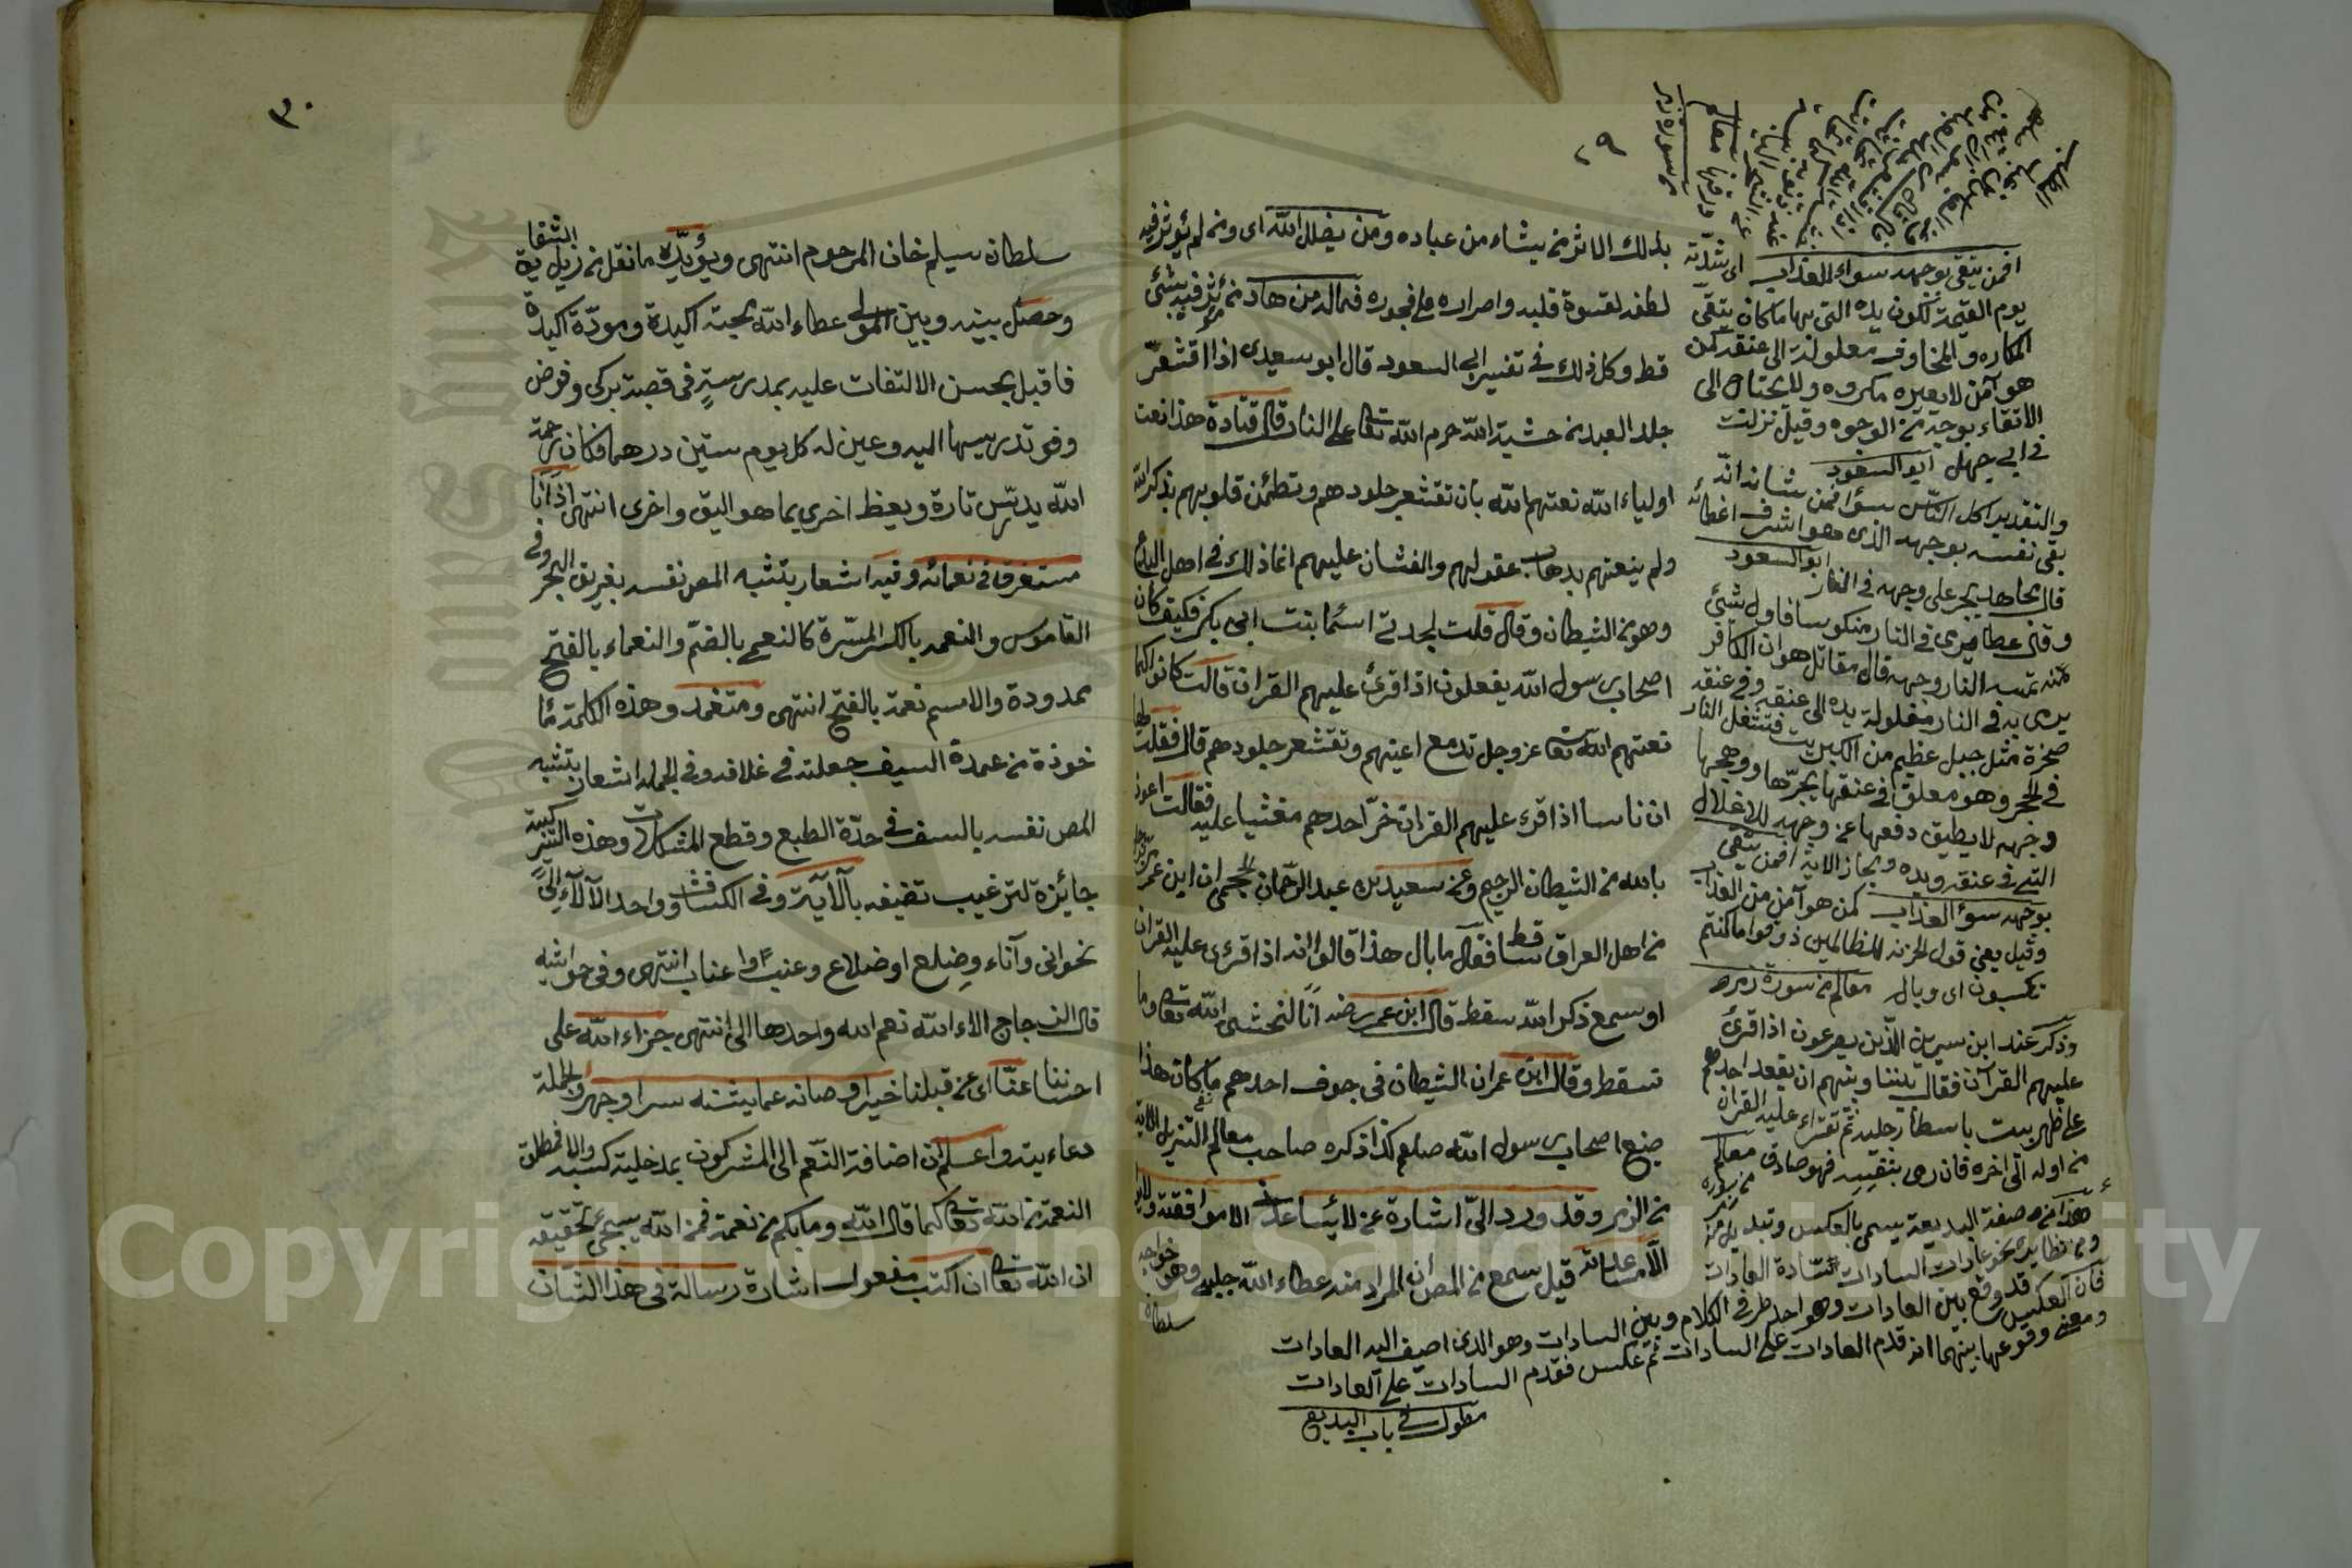 ٢٩
بذلك الاثر من يشاء من عباده ومن يضلل الله اى ومن لم يؤثر فيه
لطفه لقسوة قلبه واصراره على فجوره فماله من هاد من مؤثر فيه بشئ
قط وكل ذلك فى تفسير ابى السعود قال ابو سعيدى اذا اقشعرّ
جلد العبد من خشية الله حرم الله تعالى على النار قال قتادة هذا نعت
اولياء الله نعتهم الله بان تقشعر جلودهم وتطمئن قلوبهم بذكر الله
ولم ينعتهم بذهاب عقولهم والغشان عليهم انما ذلك فى اهل البدع
وهو من الشيطان وقال قلت لجدتى اسما بنت ابى بكر فكيف كان
اصحاب رسول الله يفعلون اذا قرئ عليهم القران قالت كانوا كما
نعتهم الله تعالى عز وجل تدمع اعينهم وتقشعر جلودهم قال فقلت لها
ان ناسا اذا قرء عليهم القران خرّ احدهم مغشيا عليه فقالت اعوذ
بالله من الشيطان الرجيم وعن سعيد بن عبد الرحمان الجمحى ان ابن عمر
من اهل العراق ساقط فقال ما بال هذا قالوا انه اذا قرئ عليه القران
او سمع ذكر الله سقط قال ابن عمر رضه انا لنخشى الله تعالى وما
نسقط وقال ابن عمر ان الشيطان فى جوف احدهم ما كان هذا
صنع اصحاب رسول الله صلعم كذا ذكره صاحب معالم التنزيل
من الزمر وقد ورد الىّ اشارة من لا يساعدنى الا موافقته
الا مساعدته قيل سمع من المص ان المراد منه عطاء الله جلبى وهو خواجه
سلطان
افمن يتقى بوجهه سواء العذاب اى شدّته
يوم القيمة تكون يده التى بها ما كان يتقى
المكاره والمخاوف مغلولة الى عنقه كمن
هو آمن لا يعيره مكروه ولا يحتاج الى
الاتقاء بوجه من الوجوه وقيل نزلت
فى ابى جهل ابو السعود
والتقدير اكل الناس سواء فمن شانه انه
يقى نفسه بوجهه الذى هو اشرف اعضائه
ابو السعود
قال مجاهد يجر على وجهه فى النار
وقال عطا يرمى فى النار منكوسا فاول شئ
منه تمسه النار وجهه قال مقاتل هو ان الكافر
يرمى به فى النار مغلولة يده الى عنقه وفى عنقه
صخرة مثل جبل عظيم من الكبريت فتشتعل النار
فى الحجر وهو معلق فى عنقه يجرّها ووهجها
وجهه لا يطيق دفعها عن وجهه للاغلال
التى فى عنقه ويده ومجاز الاية افمن يتقى
بوجهه سوء العذاب كمن هو آمن من العذاب
وقيل يعنى قول الخزنة للظالمين ذوقوا ما كنتم
تكسبون اى وبال معالم من سورة زمر
وذكر عند ابن سيرين الذين يصرعون اذا قرئ
عليهم القرآن فقال بيننا وبينهم ان يقعد احدهم
على ظهر بيت باسطا رجليه ثم يقرء عليه القران
من اوله الى اخره فان رمى بنفسه فهو صادق معالم
من سورة زمر
هذا من صنعة البديعة يسمى بالعكس وتبديل
ومن نظايره نحو عادات السادات سادة العادات
فان العكس قد وقع بين العادات وهو احد طرفى الكلام وبين السادات وهو الذى اضيف اليه العادات
ومعنى وقوعها بينهما انه قدم العادات على السادات ثم عكس فقدم السادات على العادات
مطول فى باب البديع
٣٠
سلطان سيلم خان المرحوم انتهى ويؤيّده ما نقل من زيل الشقايق
وحصل بينه وبين المولى عطاء الله محبة اكيدة ومودّة اكيدة
فاقبل بحسن الالتفات عليه بمدرسته فى قصبة بركى وفوض
وفو تدريسها اليه وعين له كل يوم ستين درهما فكان رحمة
الله يدرّس تارة ويعظ اخرى بما هو اليق واخرى انتهى اذ انا
مستغرق فى نعمائه وفيه اشعار بتشبه المص نفسه بغريق البحر وفى
القاموس والنعمه بالكسر المسرّة كالنعمى بالضمّ والنعماء بالفتح
ممدودة والاسم نعمة بالفتح انتهى ومتغمد وهذه الكلمة مأ
خوذة من غمدة السيف جعلته فى غلافه وفى الجملة اشعار بتشبه
المص نفسه بالسف فى حدّة الطبع وقطع المشكلات وهذه التركيبة
جائزة لترغيب تضيفه بآلآية وفى الكشاف وواحد الآلآء الى
نحو انى وآناء وضلع اوضلاع وعنب واعناب انتهى وفى حواشيه
قال الزجاج الاء الله نعم الله واحدها الى انتهى جزاء الله على
احسننا عنّا اى من قبلنا خيرا وصانه عما يشنه سرا وجهرا والجملة
دعاءيته واعلم ان اضافة النّعم الى المشركون بمدخلية كسبه والا فمطلق
النعمة من الله تعالى كما قال الله وما بكم من نعمة فمن الله سيجئ تحقيقه
ان الله تعالى ان اكتب مفعول اشارة رسالة فى هذا الشان